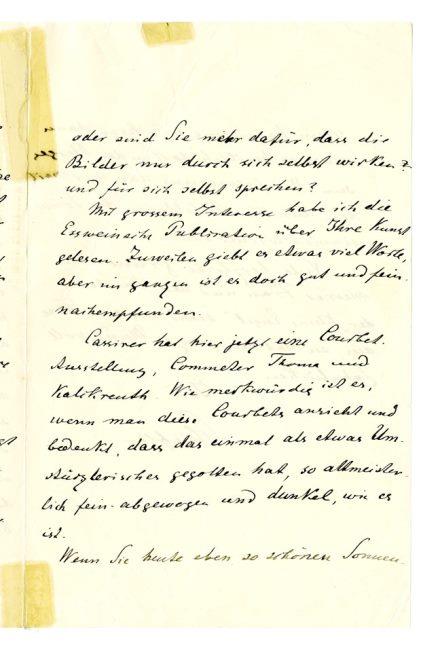 oder sind Sie mehr dafür, dass die
Bilder nur durch sich selbst wirken?
und für sich selbst sprechen?
Mit grossem Interesse habe ich die
Essweinsche Publication über Ihre Kunst
gelesen. Zuweilen giebt es etwas viel Worte,
aber im ganzen ist es doch gut und fein
nachempfunden.
Cassirer hat hier jetzt eine Courbet-
Ausstellung, Commeter Thoma und
Kalckreuth. Wie merkwürdig ist es,
wenn man diese Courbets ansieht und
bedenkt, dass das einmal als etwas Um-
stürzlerisches gegolten hat, so altmeister-
lich fein-abgewogen und dunkel, wie es
ist.
Wenn Sie heute eben so schönen Sonnen-